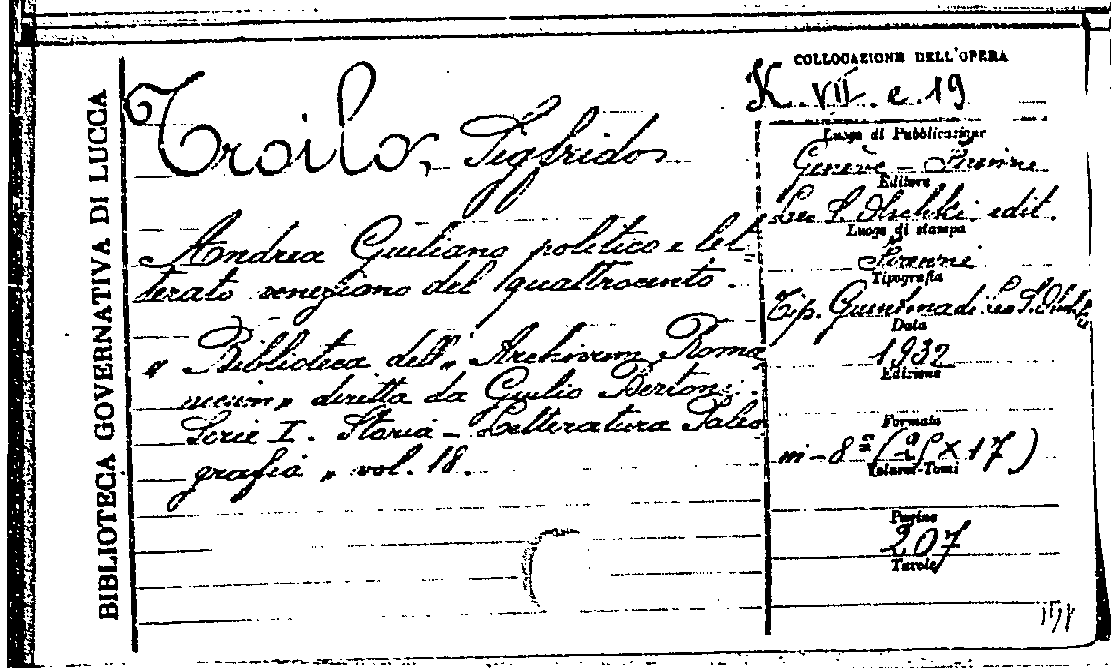 BIBLIOTECA GOVERNATIVA DI LUCCA
Troilo, Sigfrido
Andrea Giuliano politico e let=
terato veneziano del quattrocento.
" Biblioteca dell'" Archivum Roma
nicum" diretta da Giulio Bertoni.
Serie I. Storia - Letteratura Paleo
grafia " vol. 18.
COLLOCAZIONE DELL'OPERA
K. VII. e. 19
Luogo di Pubblicazione
Genève - Firenze
Editore
Leo S. Olschki edit.
Luogo di stampa
Firenze
Tipografia
Tip. Giuntina di Leo S. Olschki
Data
1932
Edizione
Formato
in - 8º ( × 17 )
Volumi-Tomi
Pagine
207
Tavole